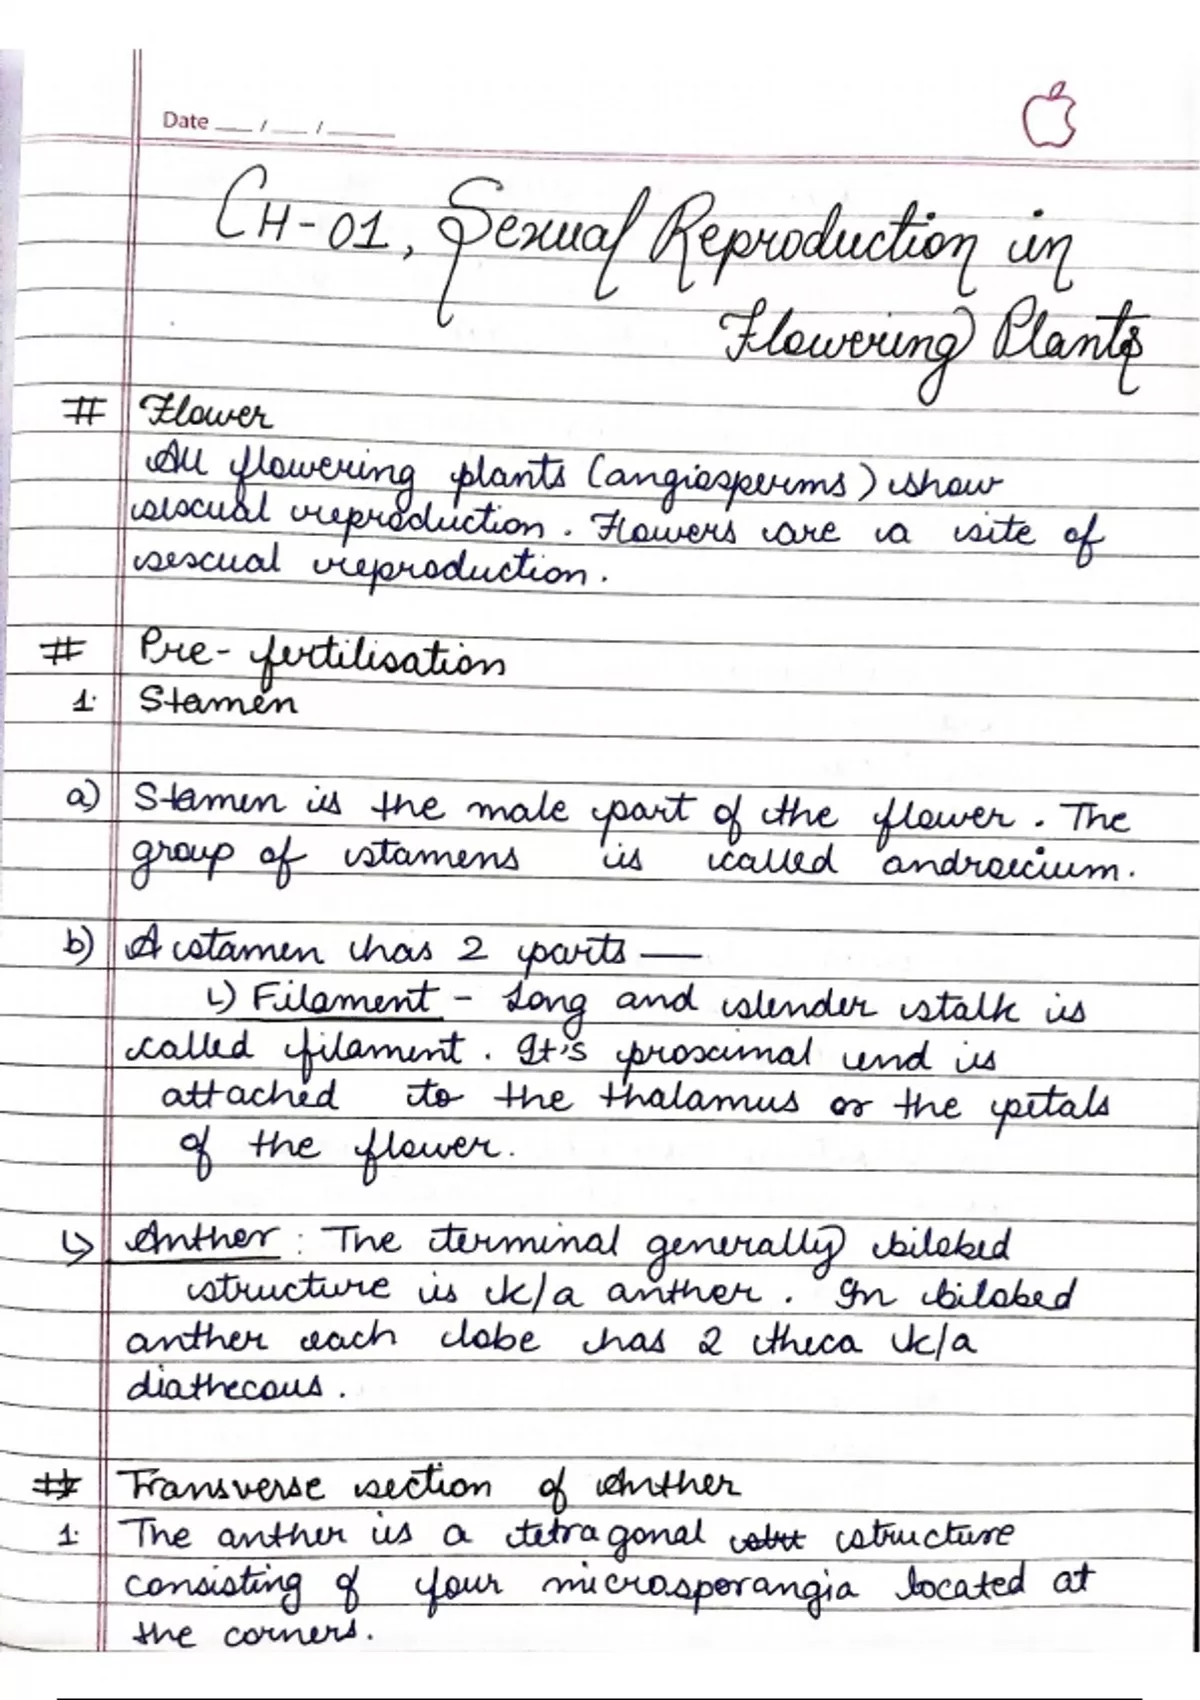 Date __/__/____
CH-01, Sexual Reproduction in
Flowering Plants
# Flower
All flowering plants (angiosperms) show
sexual reproduction. Flowers are a site of
sexual reproduction.
# Pre-fertilisation
1. Stamen
a) Stamen is the male part of the flower. The
group of stamens is called androecium.
b) A stamen has 2 parts —
↳ Filament - Long and slender stalk is
called filament. It's proximal end is
attached to the thalamus or the petals
of the flower.
↳ Anther : The terminal generally bilobed
structure is k/a anther. In bilobed
anther each lobe has 2 theca k/a
diathecous.
# Transverse section of Anther
1. The anther is a tetragonal structure
consisting of four microsporangia located at
the corners.